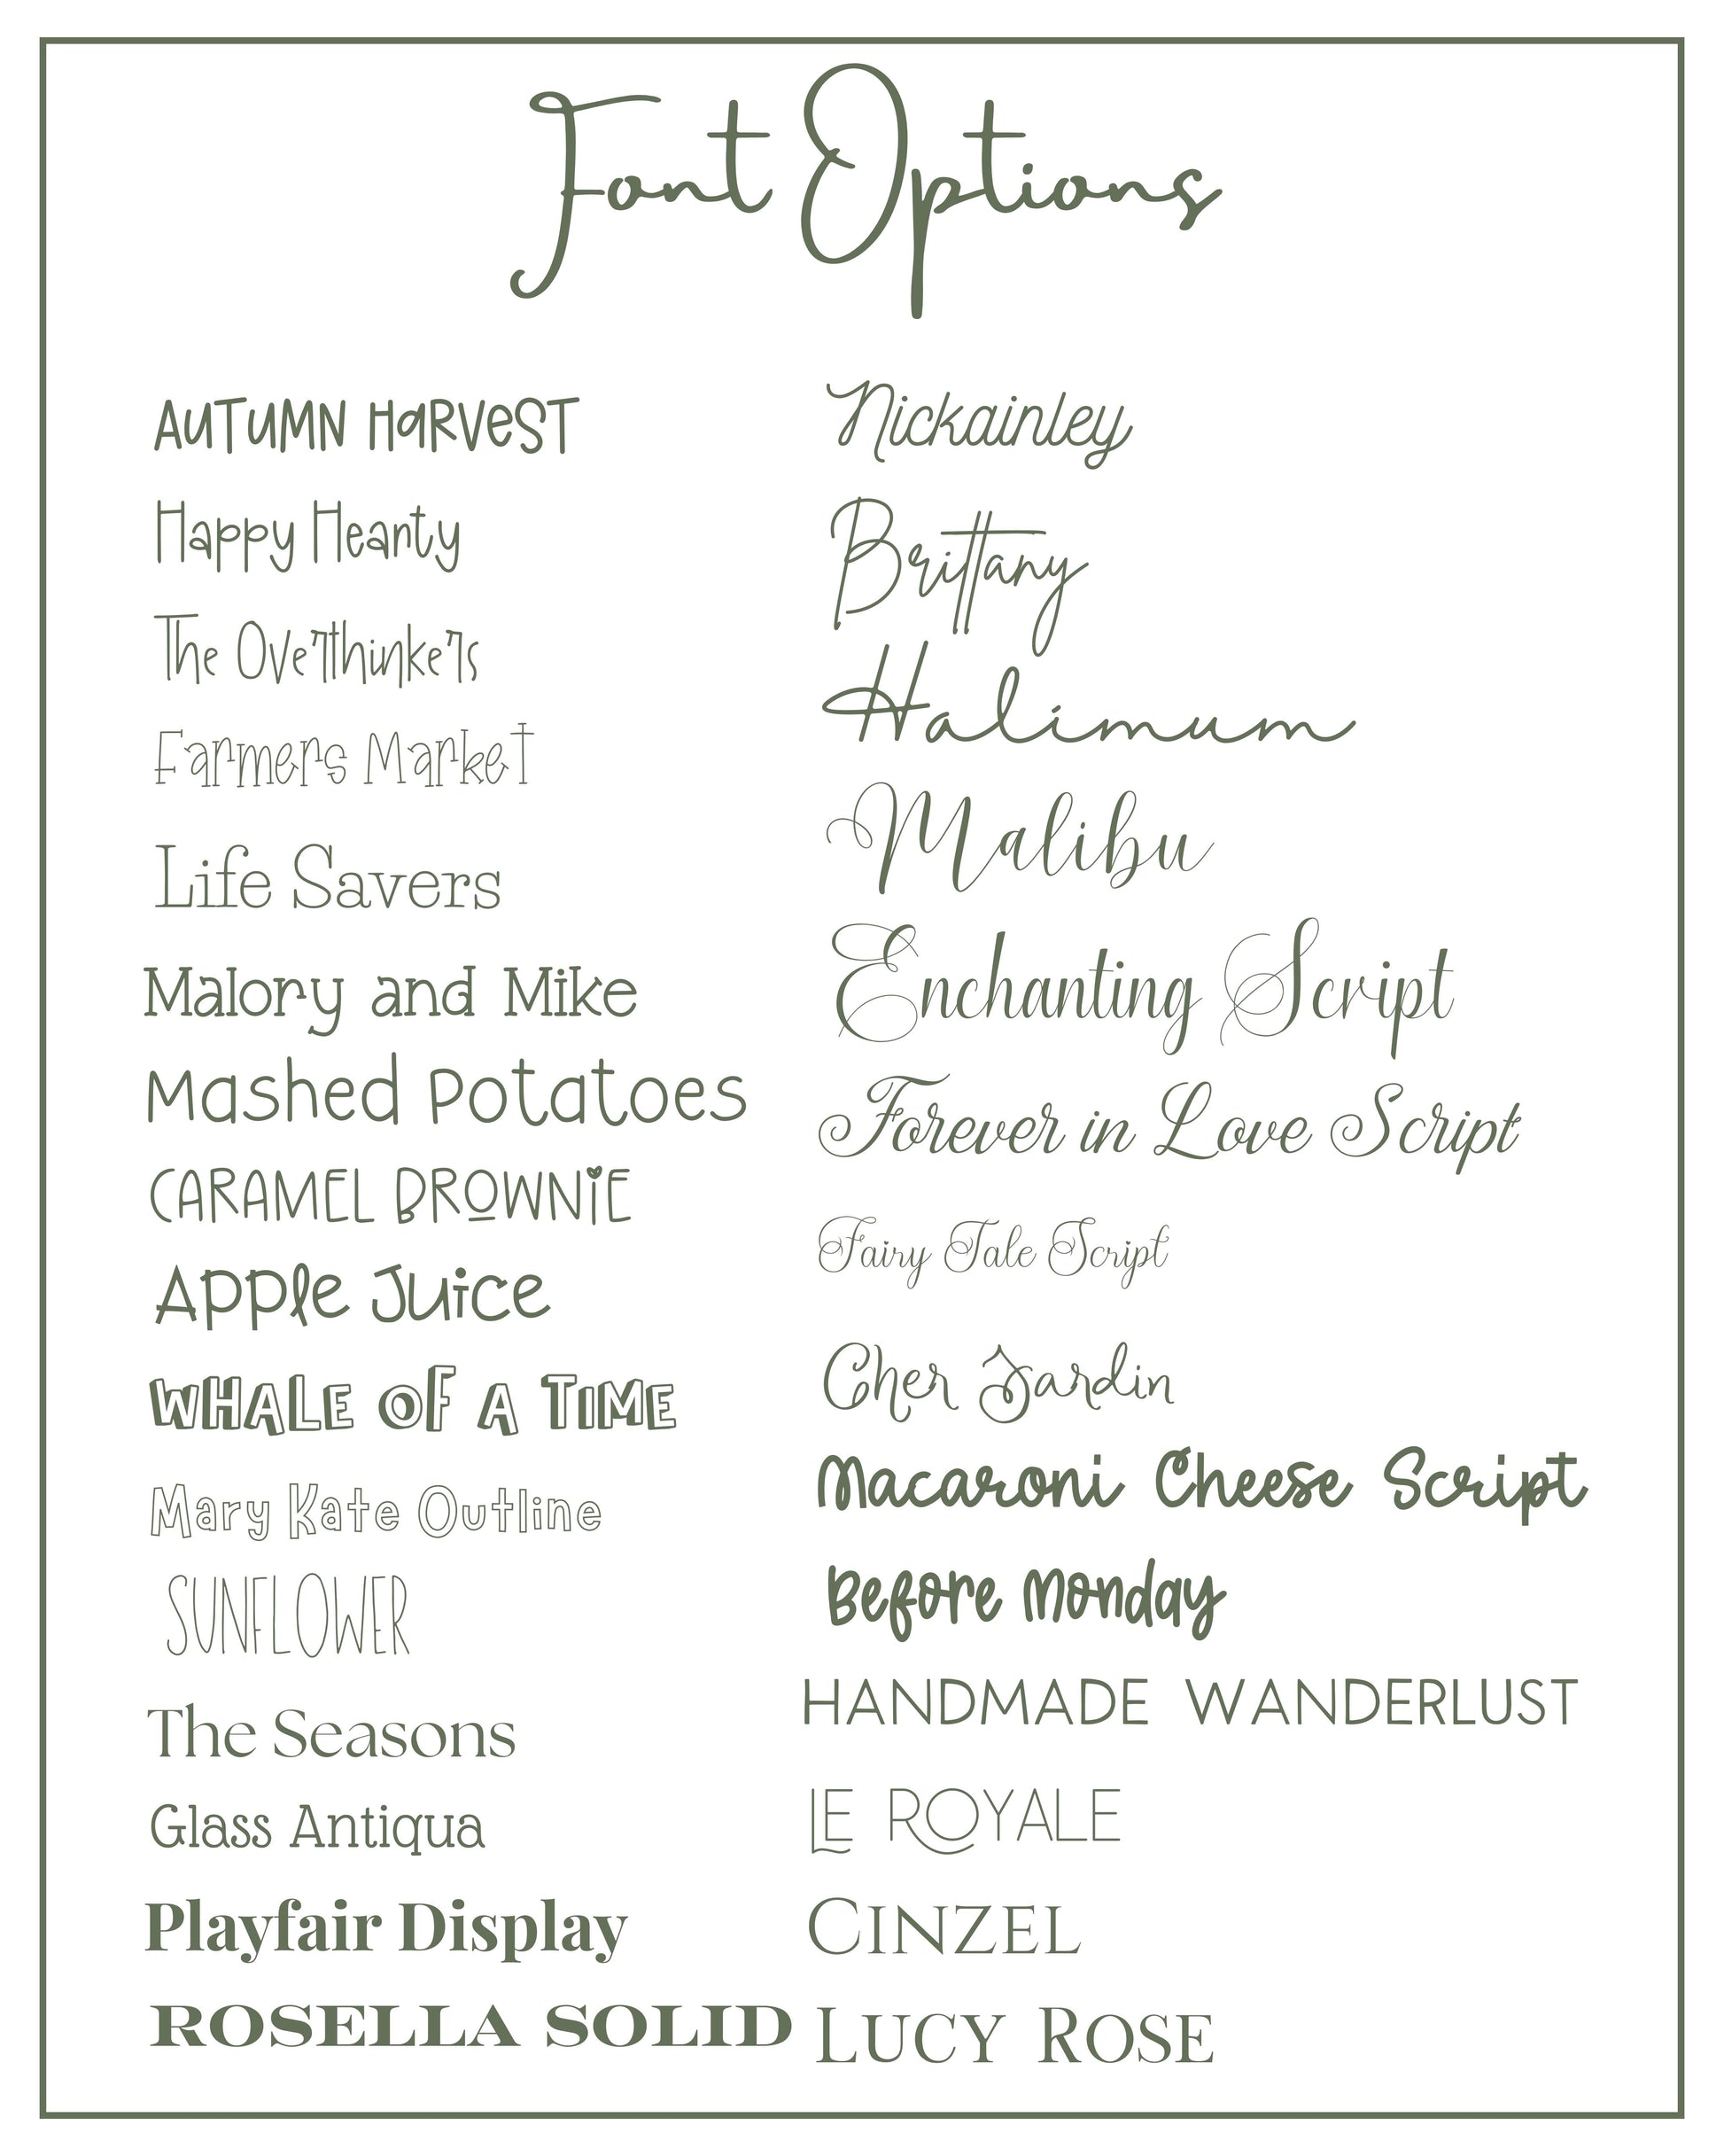 Font Options
AUTUMN HARVEST
Happy Hearty
The Overthinkers
Farmers Market
Life Savers
Malory and Mike
Mashed Potatoes
CARAMEL BROWNIE
Apple Juice
WHALE OF A TIME
Mary Kate Outline
SUNFLOWER
The Seasons
Glass Antiqua
Playfair Display
ROSELLA SOLID
Nickainley
Brittany
Halimum
Malibu
Enchanting Script
Forever in Love Script
Fairy Tale Script
Cher Jordin
Macaroni Cheese Script
Before Monday
HANDMADE WANDERLUST
LE ROYALE
CINZEL
LUCY ROSE